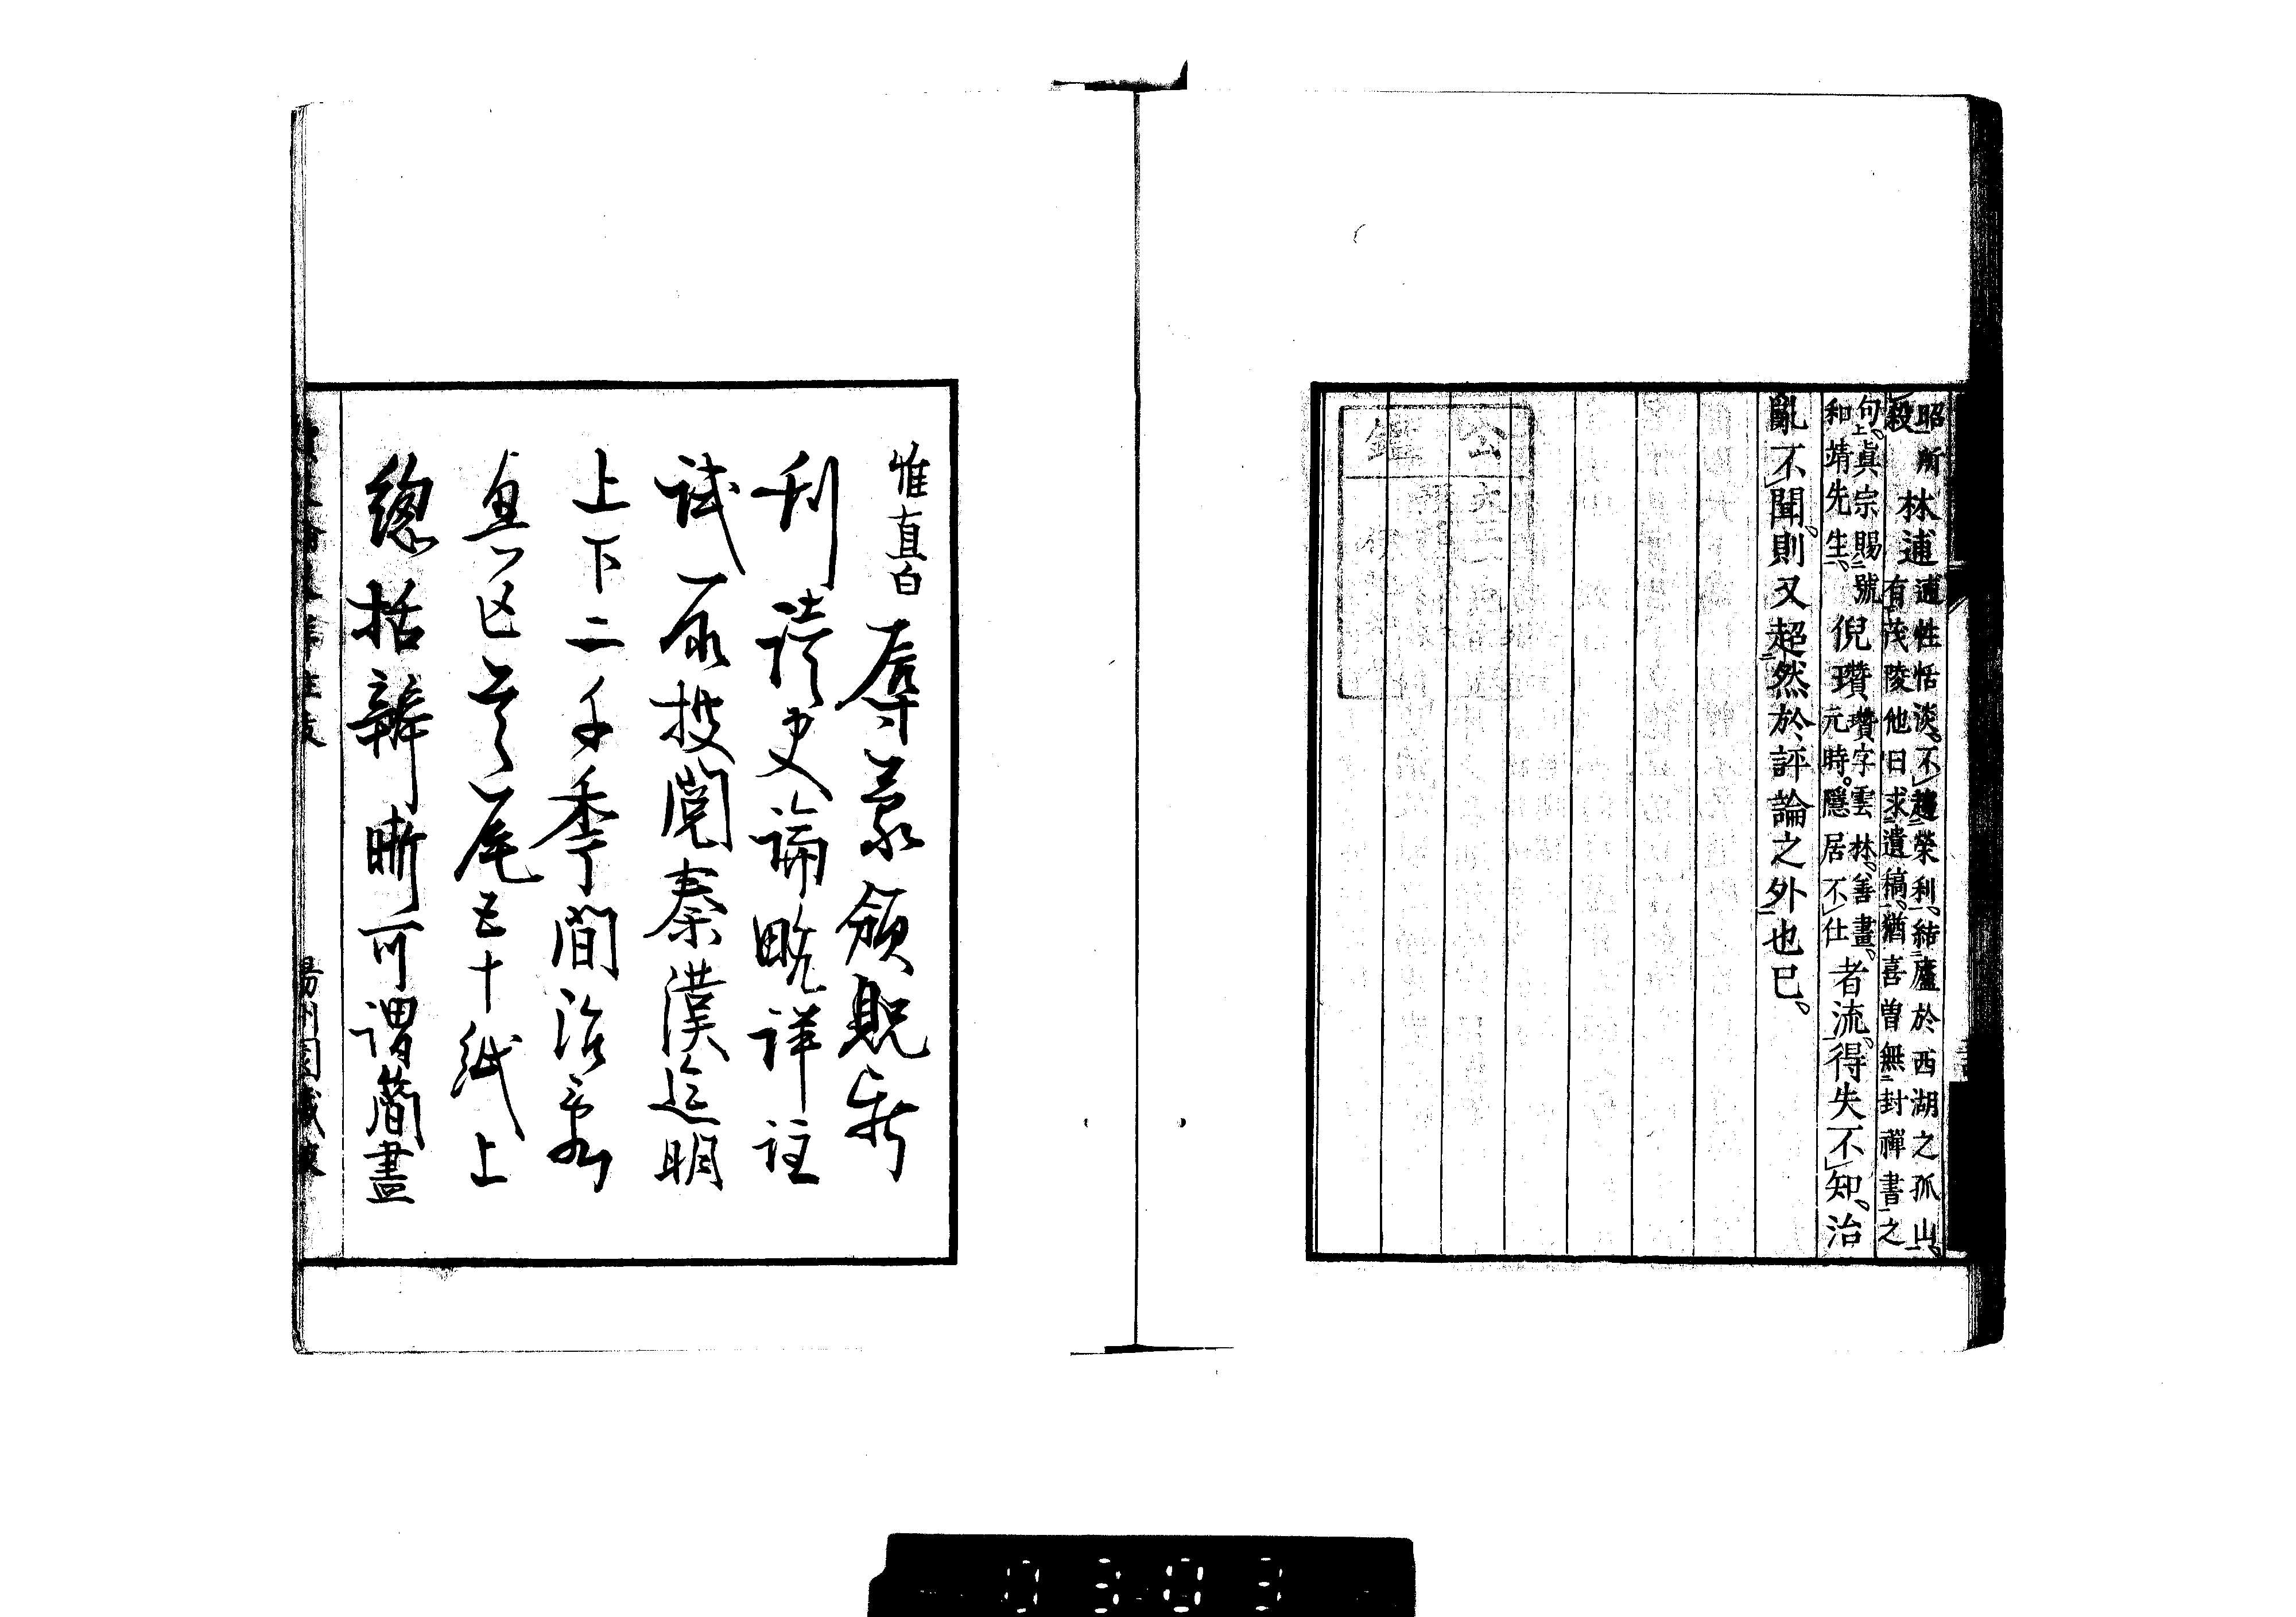 昭所林逋逋性恬淡、不趨榮利、結廬於西湖之孤山、
殺有茂陵他日求遺稿、猶喜曽無封禪書之
句、眞宗賜號倪瓚瓚字雲林、善畫、者流、得失不知、治
和靖先生、元時。隱居不仕
亂不聞、則又超然於評論之外也已、
惟直白
辱蒙領貺新
刊讀史論畧詳註
試一展披閲秦漢迄明
上下二千季間治亂
興亡首尾五十紙上
總括辨晰可謂簡盡